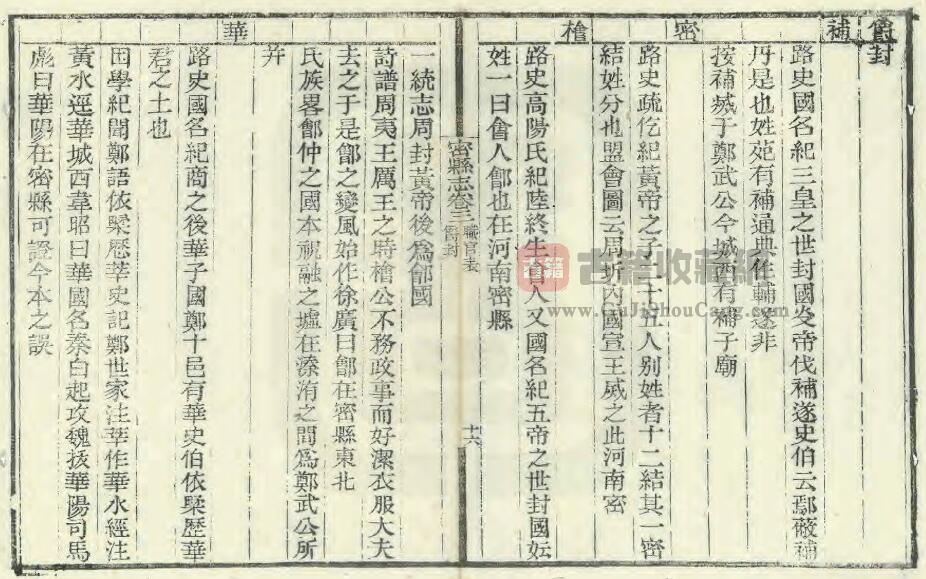 爵封
補
路史國名紀三皇之世封國炎帝伐補遂史伯云鄢蔽補
丹是也姓苑有補通典作輔遂非
按補滅于鄭武公今城西有補子廟
密
路史疏仡紀黃帝之子二十五人别姓者十二結其一密
結姓分也盟會圖云周圻内國宣王滅之此河南密
檜
路史高陽氏紀陸終生會人又國名紀五帝之世封國妘
姓一曰會人鄶也在河南密縣
密縣志卷三 職官表 爵封
十六
一統志周封黃帝後爲鄶國
詩譜周夷王厲王之時檜公不務政事而好潔衣服大夫
去之于是鄶之變風始作徐廣曰鄶在密縣東北
氏族畧鄶仲之國本祝融之墟在溱洧之間爲鄭武公所
并
華
路史國名紀商之後華子國鄭十邑有華史伯依䣛歷華
君之土也
困學紀聞鄭語依䣛歷莘史記鄭世家注莘作華水經注
黃水逕華城西韋昭曰華國名秦白起攻魏拔華陽司馬
彪曰華陽在密縣可證今本之誤
古籍收藏網
www.GuJiShouCang.com